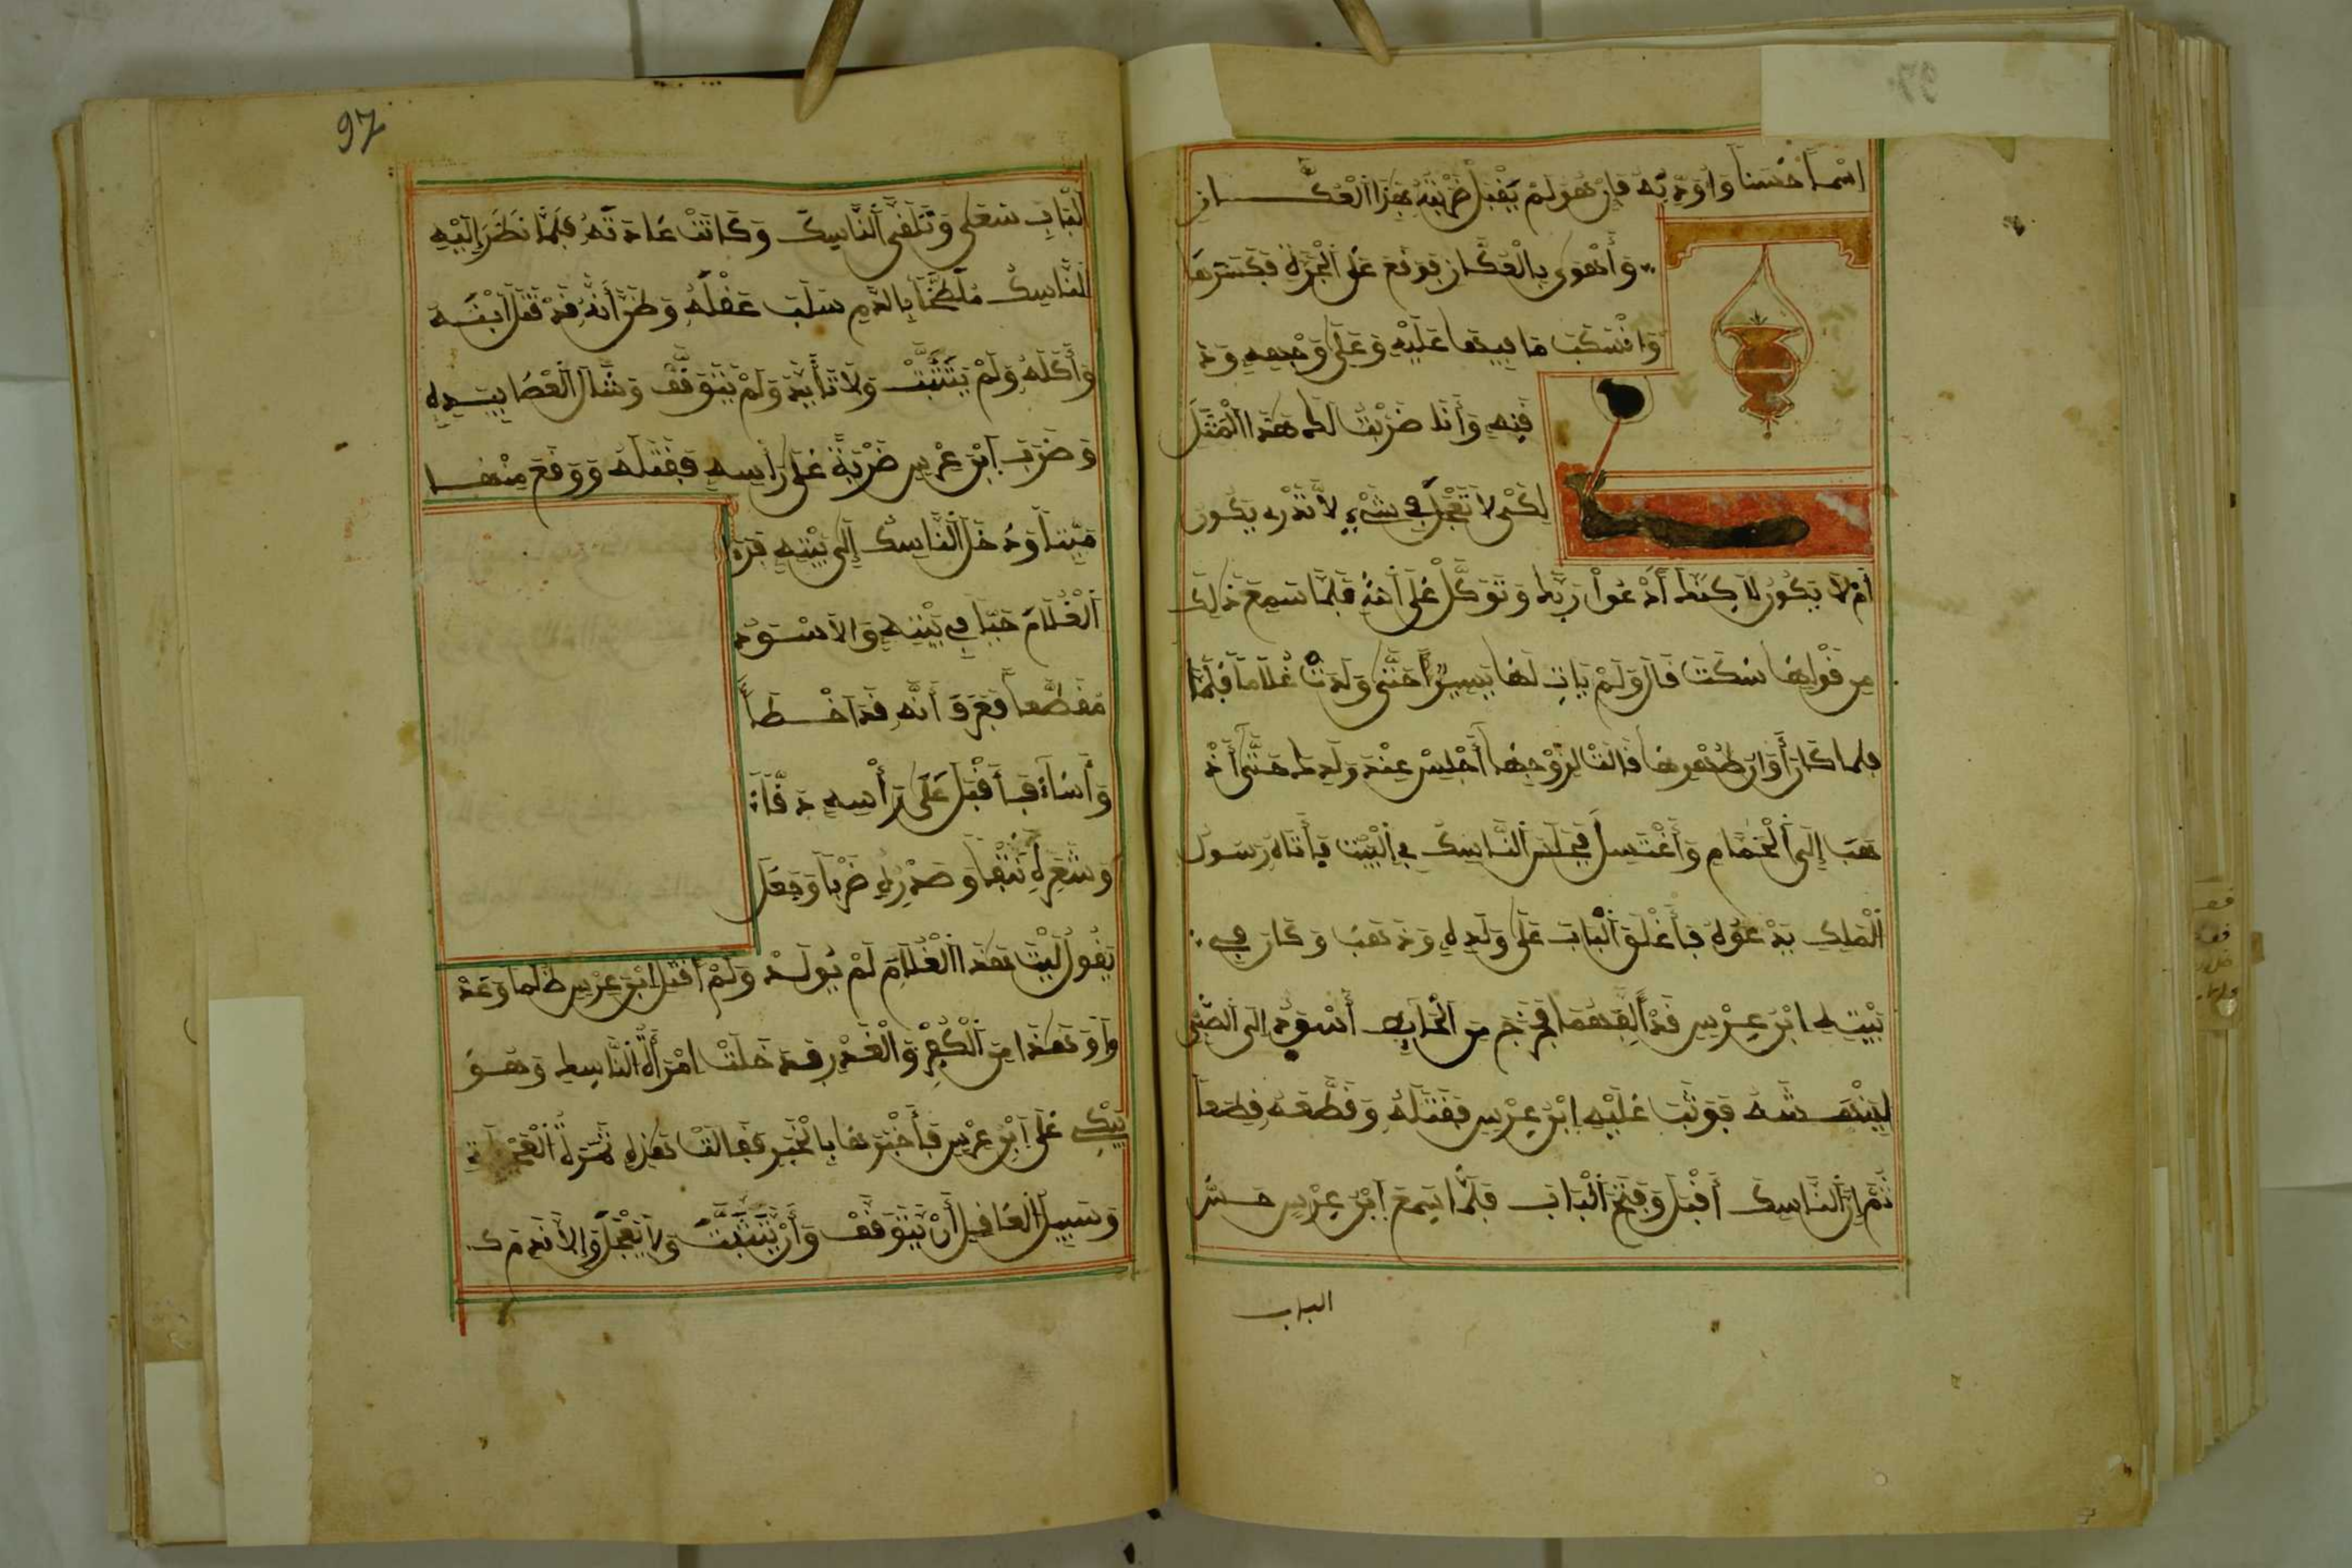 اسْماً حُسَناً وَأُوَدِّبُهُ فَإِنْ هُوَ لَمْ يَقْبَلْ ضَرَبْتُهُ بِهَذَا الْعُكَّازِ
وَأَهْوَى بِالْعُكَّازِ فَوَقَعَ عَلَى الْجَرَّةِ فَكَسَّرَهَا
وَانْسَكَبَ مَا فِيهَا عَلَيْهِ وَعَلَى وَجْهِهِ وَذَ
فَنِهِ وَأَنَا ضَرَبْتُ لَكَ هَذَا الْمَثَلَ
لِكَيْ لَا تَعْجَلَ فِي شَيْءٍ لَا تَدْرِ يَكُونُ
أَمْ لَا يَكُونُ لَاكِنْ أَدْعُوا رَبَّكَ وَتَوَكَّلْ عَلَى اللهِ فَلَمَّا سَمِعَ ذَلِكَ
مِن قَوْلِهَا سَكَتَ قَالَ وَلَمْ يَاتِ لَهَا يَسِيراً حَتَّى وَلَدَتْ غُلَاماً فَلَمَّا
فلما كَانَ أَوَانُ طُهْرِهَا قَالَتْ لِزَوْجِهَا أَجْلِسْ عِنْدَ وَلَدِكَ حَتَّى أَذْ
هَبَ إِلَى الْحَمَّامِ وَأَغْتَسِلَ فَجَلَسَ النَّاسِكُ فِي الْبَيْتِ فَأَتَاهُ رَسُولُ
الْمَلِكِ يَدْعُوهُ فَأَغْلَقَ الْبَابَ عَلَى وَلَدِهِ وَذَهَبَ وَكَانَ فِي
بَيْتِهِ ابْنُ عِرْسٍ قَدْ أَلِفَهُمَا فَخَرَجَ مِنَ الْحَايِطِ أَسْوَدُ إِلَى الصَّبِي
لِيَنْهَشَهُ فَوَثَبَ عَلَيْهِ ابْنُ عِرْسٍ فَقَتَلَهُ وَقَطَّعَهُ قِطَعاً
ثُمَّ إِنَّ النَّاسِكَ أَقْبَلَ وَفَتَحَ الْبَابَ فَلَمَّا سَمِعَ ابْنُ عِرْسٍ حَسَّ
الباب
97
الْبَابِ سَعَى وَتَلَقَّى النَّاسِكَ وَكَانَتْ عَادَتَهُ فَلَمَّا نَظَرَ إِلَيْهِ
النَّاسِكُ مُلَطَّخاً بِالدَّمِ سَلَبَ عَقْلَهُ وَظَنَّ أَنَّهُ قَدْ قَتَلَ ابْنَهُ
وَأَكَلَهُ وَلَمْ يَتَثَبَّتْ وَلَا تَأَيَّدَ وَلَمْ يَتَوَقَّفْ وَشَالَ الْعَصَا بِيَدِهِ
وَضَرَبَ ابْنَ عِرْسٍ ضَرْبَةً عَلَى رَأْسِهِ فَقَتَلَهُ وَوَقَعَ مِنْهَا
مَيِّتاً وَدَخَلَ النَّاسِكُ إِلَى بَيْتِهِ فَرَءَا
الْغُلَامَ حَيّاً فِي بَيْتِهِ وَالْأَسْوَدَ
مُقَطَّعاً فَعَرَفَ أَنَّهُ قَدْ أَخْطَأَ
وَأَسَاءَ فَأَقْبَلَ عَلَى رَأْسِهِ دَقّاً
وَشَعَرِهِ نَتْفاً وَصَدْرِهِ ضَرْباً وَجَعَلَ
يَقُولُ لَيْتَ هَذَا الْغُلَامَ لَمْ يُولَدْ وَلَمْ أَقْتُلْ ابْنَ عِرْسٍ ظُلْما وَغَدْ
هَذَا مِنَ الْكُفْرِ وَالْغَدْرِ فَدَخَلَتْ امْرَأَةُ النَّاسِكِ وَهُوَ
يَبْكِي عَلَى ابْنِ عِرْسٍ فَأَخْبَرَهَا بِالْخَبَرِ فَقَالَتْ هَذِهِ ثَمَرَةُ الْعَجَلَةِ
وَسَبِيلُ الْعَاقِلِ أَنْ يَتَوَقَّفْ وَأَنْ يَتَثَبَّتَ وَلَا يَعْجَلَ وَإِلَّا نَدِمَ كَ